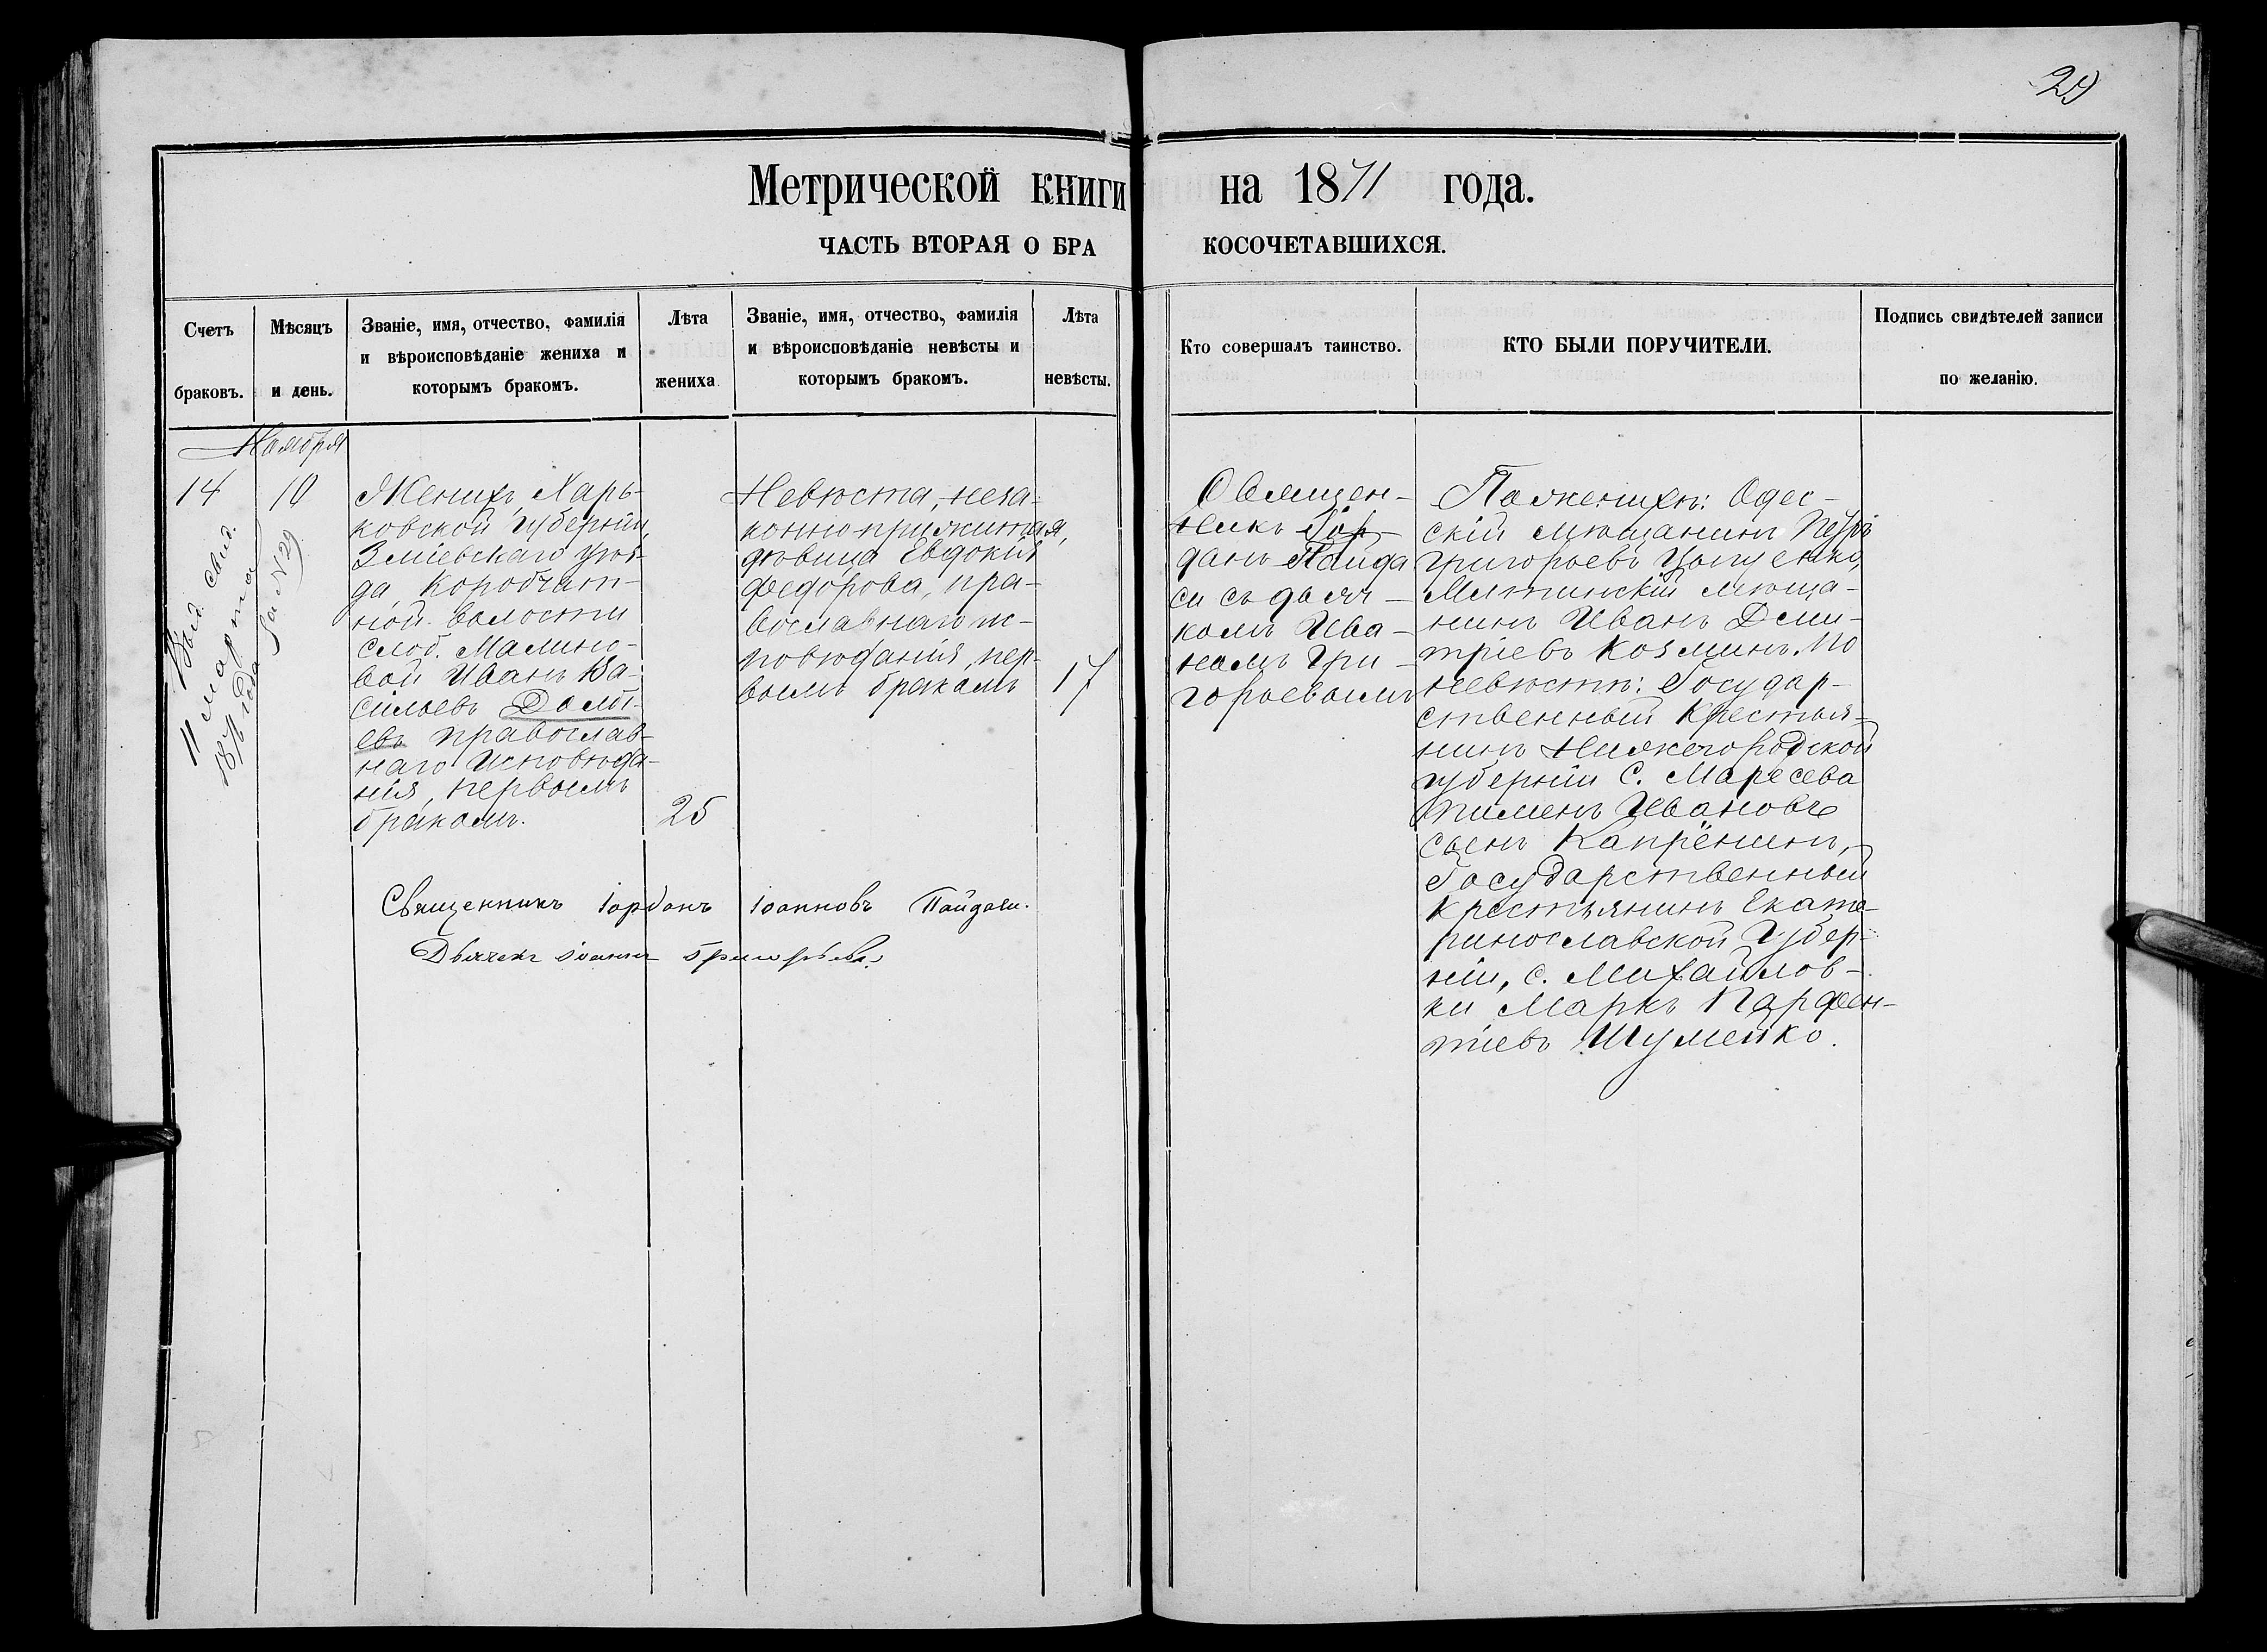 29
Метрической книги на 1871 года.
ЧАСТЬ ВТОРАЯ О БРАКОСОЧЕТАВШИХСЯ.
Счетъ браковъ.
Мѣсяцъ и день.
Званіе, имя, отчество, фамилія
и вѣроисповѣданіе жениха и
которымъ бракомъ.
Лѣта
жениха
Званіе, имя, отчество, фамилія
и вѣроисповѣданіе невѣсты и
которымъ бракомъ.
Лѣта
невѣсты.
Кто совершалъ таинство.
КТО БЫЛИ ПОРУЧИТЕЛИ.
Подпись свидѣтелей записи
по желанію.
Ноября
14
10
Выд. свид.
11 марта
за N 29
Женихъ, Харь-
ковской губерніи,
Зміевскаго уѣз-
да, Коробчат-
ной волости
слоб. Малино-
вой Иванъ Ва-
сильевъ
православ-
наго исповѣда-
нія, первымъ
бракомъ.
25
Невѣста, неза-
конноприжитая,
дѣвица Евдокія
Федорова, пра-
вославнаго ис-
повѣданія, пер-
вымъ бракомъ
17
Священ-
никъ Іор-
данъ Пайда
си съ дьяч-
комъ Ива-
номъ Гри-
горьевымъ
По женихѣ: Одес-
скій мѣщанинъ Петръ
Григорьевъ
мѣща-
нинъ Иванъ Дми-
тріевъ Козминъ. По
невѣстѣ: Государ-
ственный крестья-
нинъ Нижегородской
губерніи С. Маресева
Пименъ Ивановъ
сынъ Капрёнинъ,
Государственный
крестьянинъ Екате-
ринославской Губер-
ніи, с. Михайлов-
ки Маркъ Парфен-
тіевъ Шумейко.
Священникъ Іорданъ Іоанновъ Пайдаси.
Дьячекъ Іоаннъ Григорьевъ